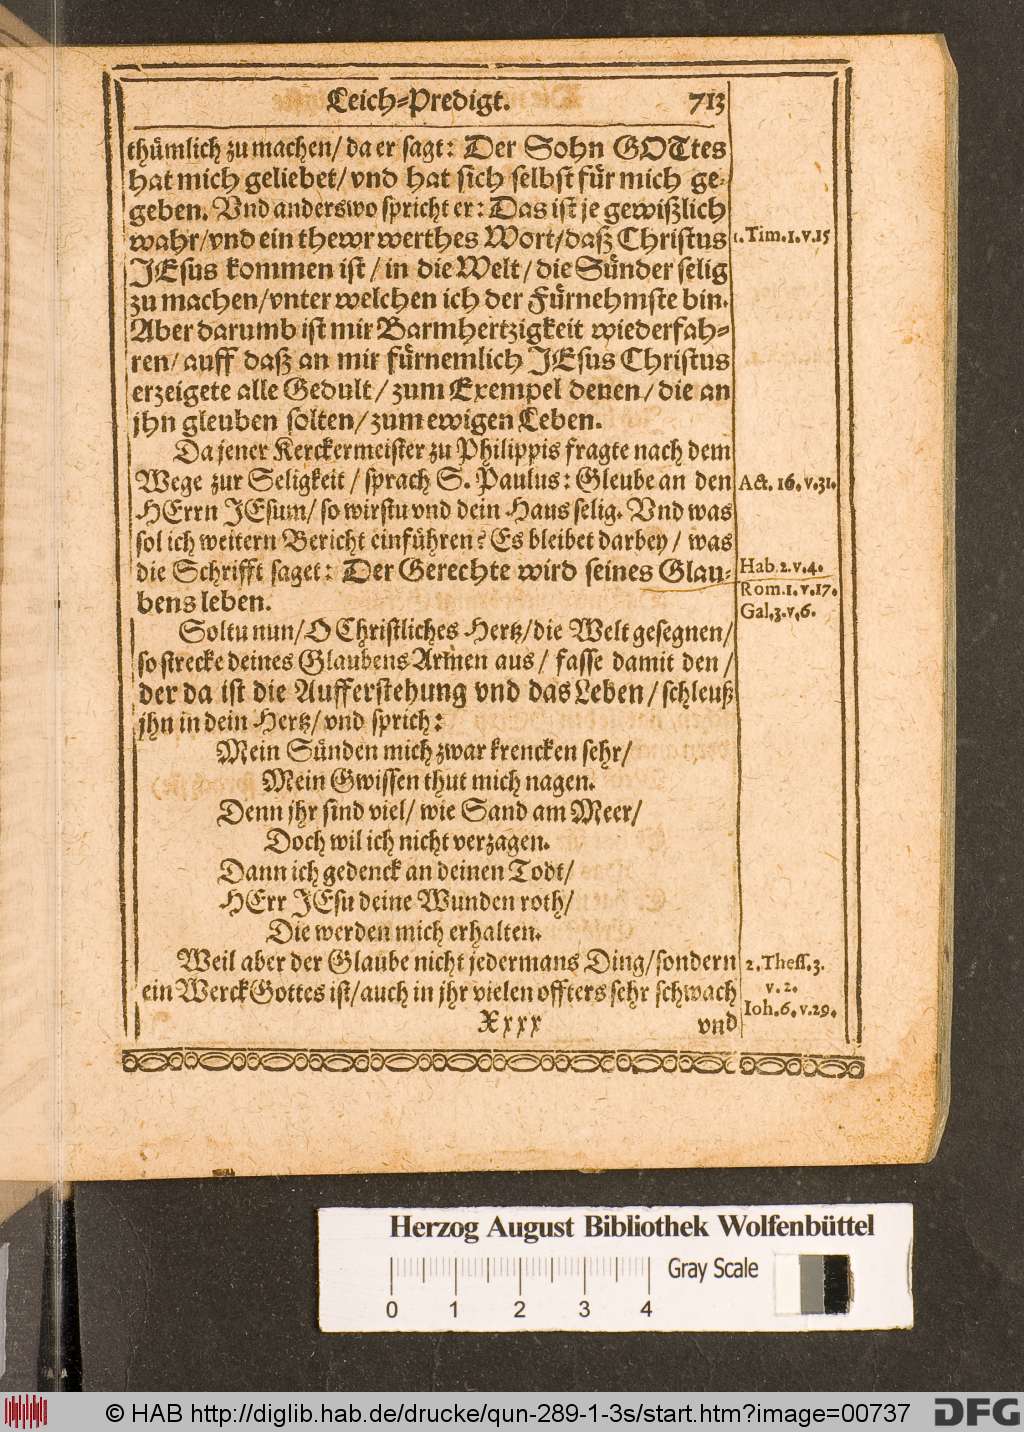 Leich-Predigt. 713
thümlich zu machen/ da er sagt: Der Sohn GOTtes
hat mich geliebet/ vnd hat sich selbst für mich ge-
geben. Vnd anderswo spricht er: Das ist je gewißlich
wahr/ vnd ein thewr werthes Wort/ daß Christus
1. Tim. 1. v. 15
JEsus kommen ist/ in die Welt/ die Sünder selig
zu machen/ vnter welchen ich der Fürnehmste bin.
Aber darumb ist mir Barmhertzigkeit wiederfah-
ren/ auff daß an mir fürnemlich JEsus Christus
erzeigete alle Gedult/ zum Exempel denen/ die an
jhn gleuben solten/ zum ewigen Leben.
Da jener Kerckermeister zu Philippis fragte nach dem
Wege zur Seligkeit/ sprach S. Paulus: Gleube an den
Act. 16. v. 31.
HErrn JEsum/ so wirstu vnd dein Haus selig. Vnd was
sol ich weitern Bericht einführen? Es bleibet darbey/ was
die Schrifft saget: Der Gerechte wird seines Glau-
Hab. 2. v. 4.
bens leben.
Rom. 1. v. 17.
Gal. 3. v. 6.
Soltu nun/ O Christliches Hertz/ die Welt gesegnen/
so strecke deines Glaubens Armen aus/ fasse damit den/
der da ist die Aufferstehung vnd das Leben/ schleuß
jhn in dein Hertz/ vnd sprich:
Mein Sünden mich zwar krencken sehr/
Mein Gwissen thut mich nagen.
Denn jhr sind viel/ wie Sand am Meer/
Doch wil ich nicht verzagen.
Dann ich gedenck an deinen Todt/
HErr JEsu deine Wunden roth/
Die werden mich erhalten.
Weil aber der Glaube nicht jedermans Ding/ sondern
2. Thess. 3.
v. 2.
ein Werck Gottes ist/ auch in jhr vielen offters sehr schwach
Ioh. 6. v. 29.
Xxxx vnd
Herzog August Bibliothek Wolfenbüttel
Gray Scale
0 1 2 3 4
© HAB http://diglib.hab.de/drucke/qun-289-1-3s/start.htm?image=00737
DFG